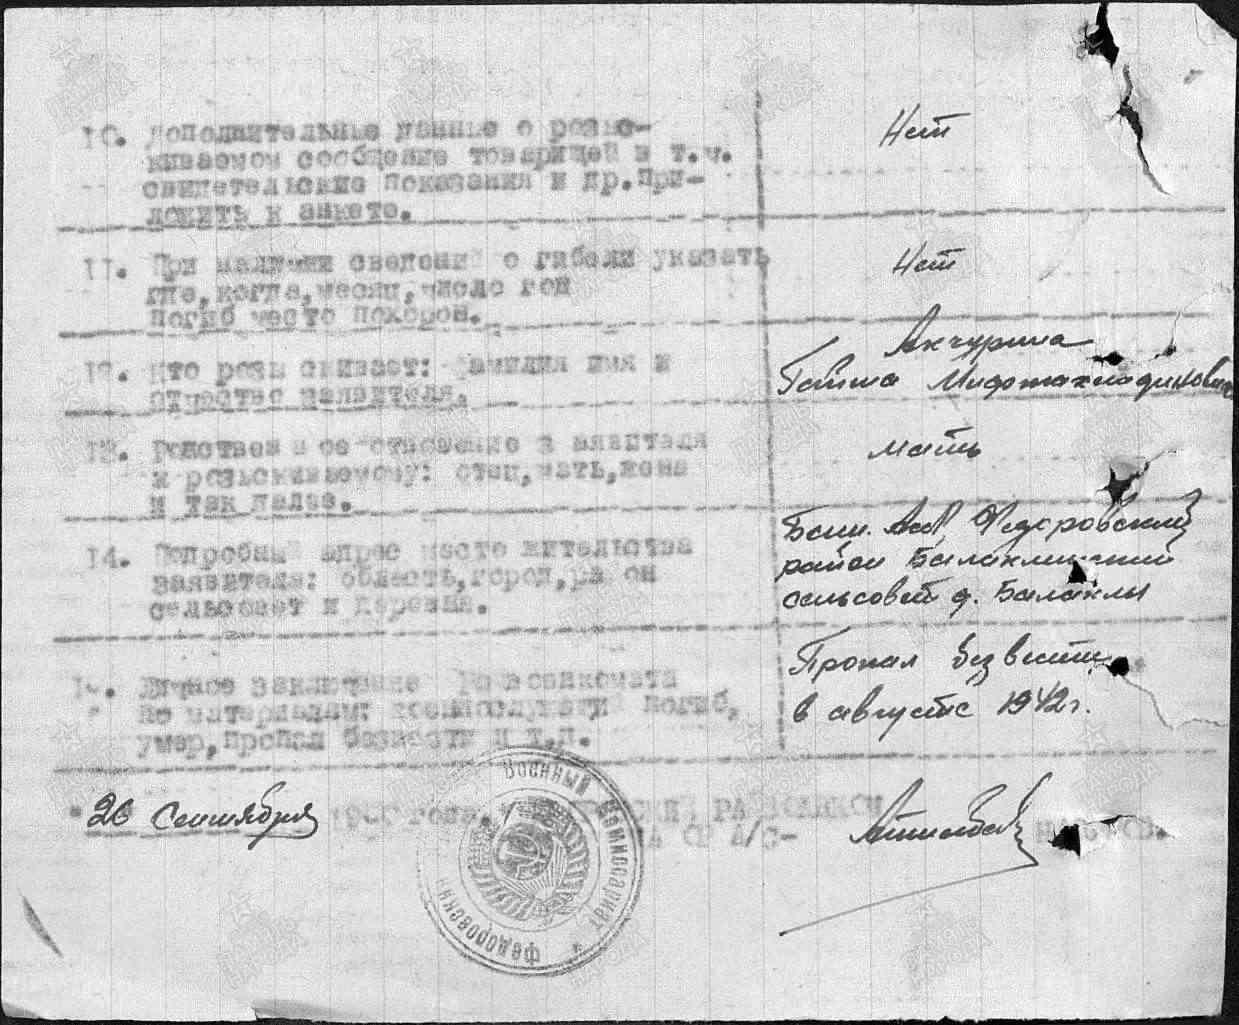 10. Дополнительные данные о разыс-
киваемом сообщение товарищей и т.ч.
свидетельские показания и др.при-
ложить к анкете.
Нет
11. При наличии сведений о гибели указать
где,когда,месяц,число
погиб место похорон.
Нет
12. Кто разыскивает: фамилия имя и
отчество заявителя.
Акчурина
13. Родственное отношение заявителя
к разыскиваемому: отец,мать,жена
и так далее.
мать
14. Подробный адрес место жительства
заявителя: область,город,район
сельсовет и деревня.
Баш. Федоровский
район Балаклинский
сельсовет д. Балаклы
заключение Райвоенкомата
по материалам: военнослужащий погиб,
умер,пропал безвести и т.д.
Пропал безвести
в августе 1942г.
26 Сентября года.
Военный Комиссариат
Федоровский